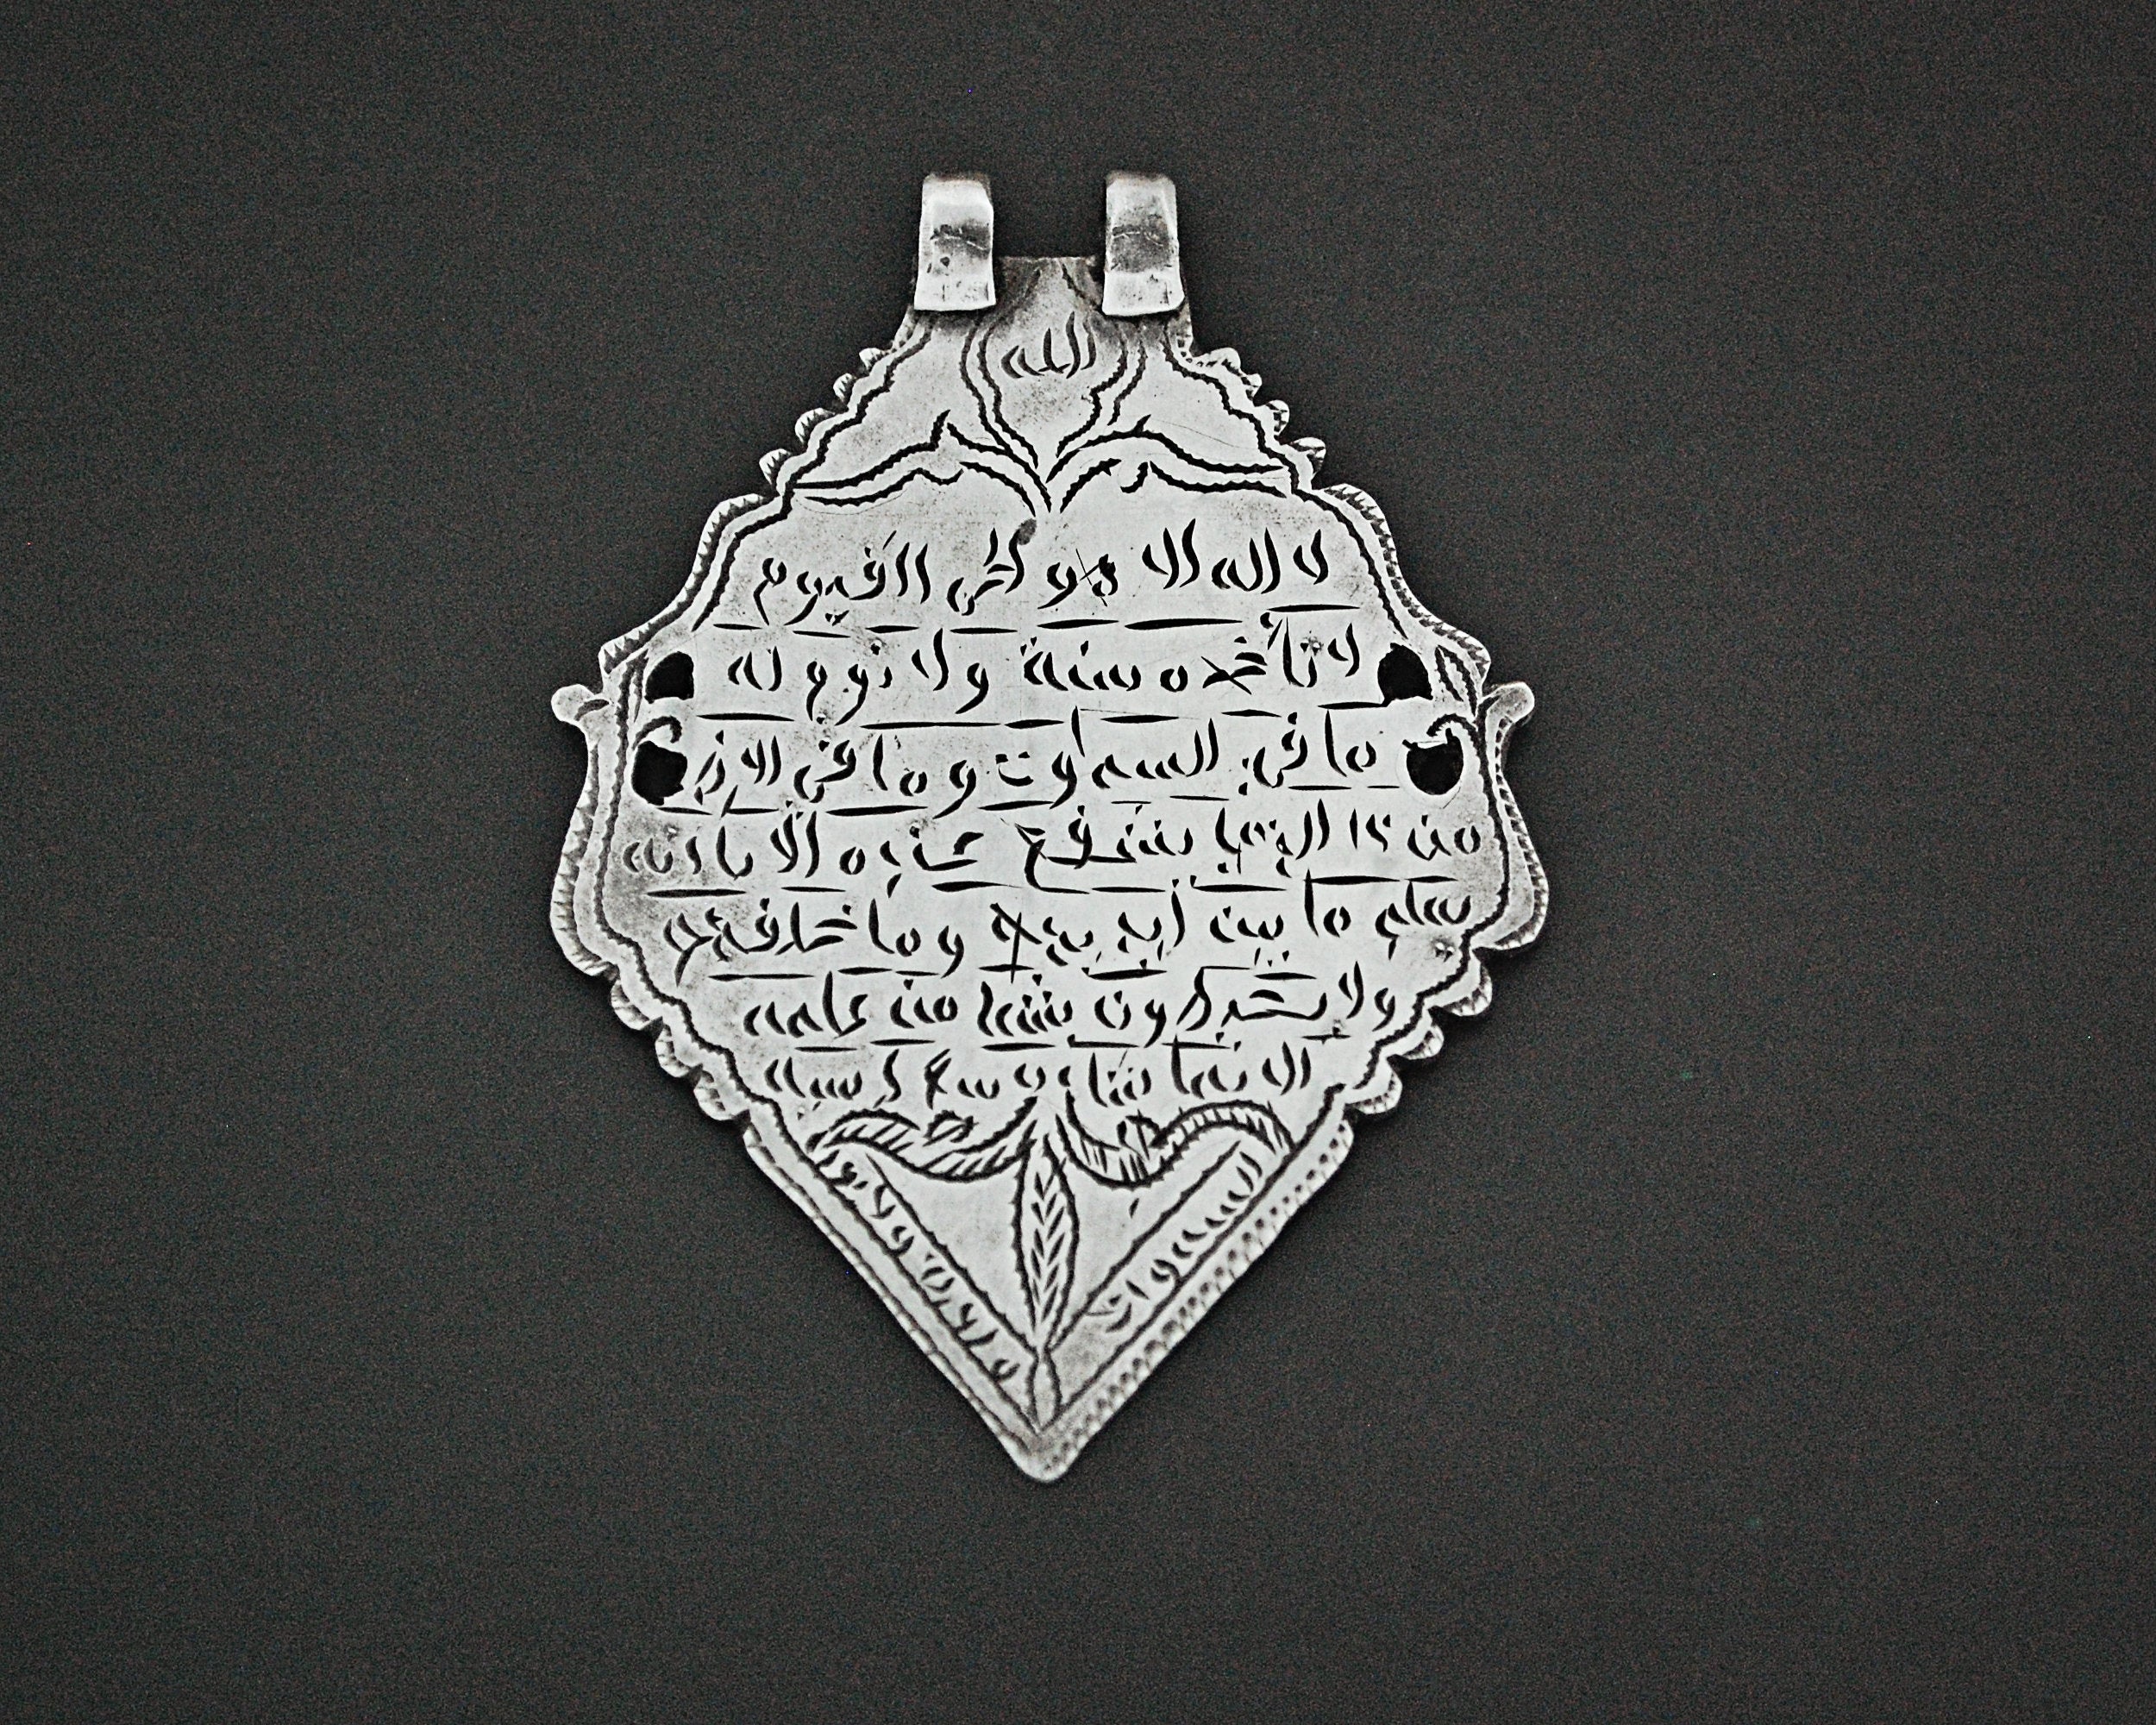 الله
لا اله الا هو الحي القيوم
لا تأخذه سنة ولا نوم له
ما في السماوت وما في الارض
من ذا الذي يشفع عنده الا باذنه
يعلم ما بين ايديهم وما خلفهم
ولا يحيطون بشيء من علمه
الا بما شاء وسع كرسيه
السموات
والارض ولا يؤ